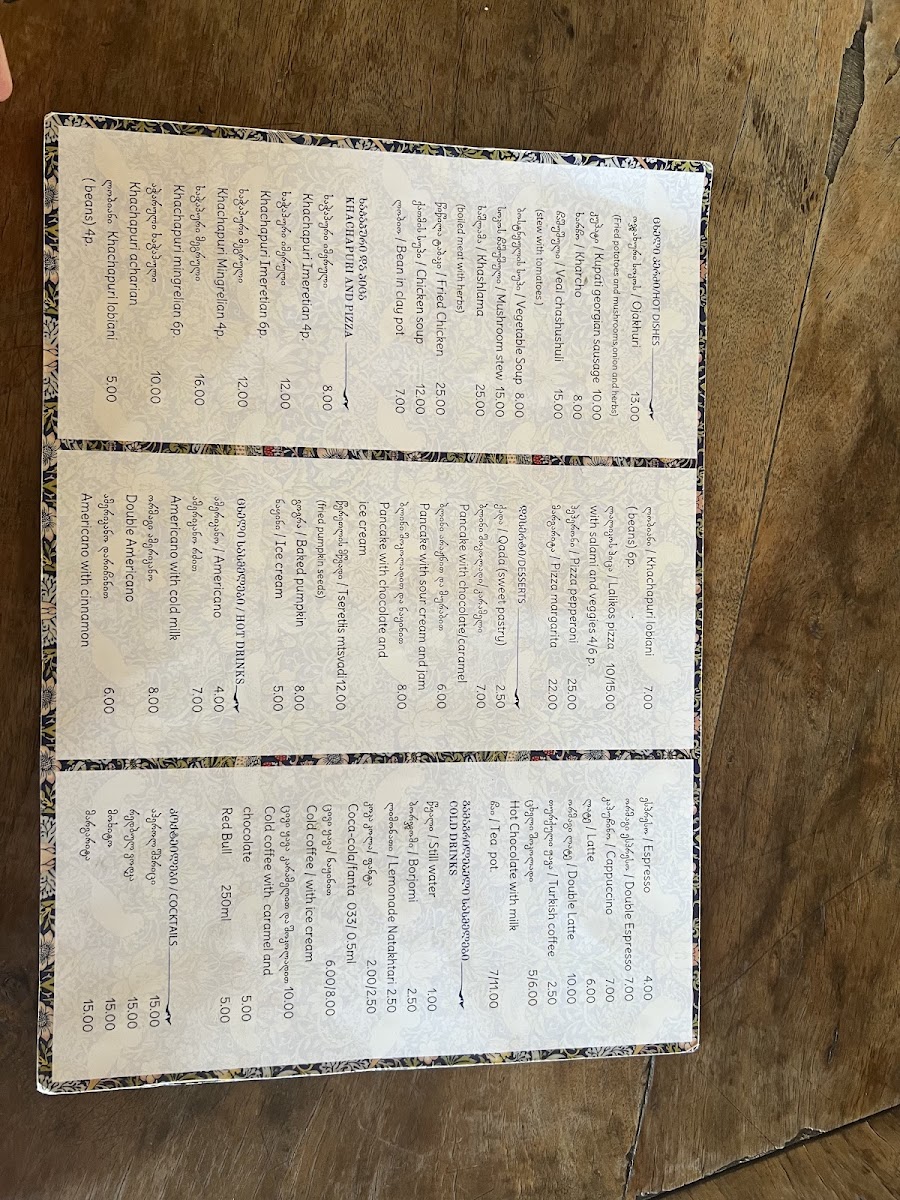 ცხელი კერძი/HOT DISHES
ოჯახური სოკოს / Ojakhuri 13.00
(Fried potatoes and mushrooms,onion and herbs)
კუპატი / Kupati georgian sausage 10.00
ხარჩო / Kharcho 8.00
ჩაშუშული / Veal chashushuli 15.00
(stew with tomatoes )
ბოსტნეულის სუპი / Vegetable Soup 8.00
სოკოს ჩაშუშული / Mushroom stew 15.00
ხაშლამა / Khashlama 25.00
(boiled meat with herbs)
წიწილა ტაბაკა / Fried Chicken 25.00
ქათმის სუპი / Chicken soup 12.00
ლობიო / Bean in clay pot 7.00
ხაჭაპური და პიცა
KHACHAPURI AND PIZZA
ხაჭაპური იმერული 8.00
Khachapuri Imeretian 4p.
ხაჭაპური იმერული 12.00
Khachapuri Imeretian 6p.
ხაჭაპური მეგრული 12.00
Khachapuri Mingrelian 4p.
ხაჭაპური მეგრული 16.00
Khachapuri mingrelian 6p.
აჭარული ხაჭაპური 10.00
Khachapuri acharian
ლობიანი Khachapuri lobiani 5.00
( beans) 4p.
ლობიანი / Khachapuri lobiani 7.00
( beans) 6p.
ლალიკოს პიცა / Lalikos pizza 10/15.00
with salami and veggies 4/6 p.
პეპერონი / Pizza pepperoni 25.00
მარგარიტა / Pizza margarita 22.00
დესერტი/DESSERTS
ქადა / Qada (sweet pastry) 2.50
ბლინი შოკოლადი/კარამელი 7.00
Pancake with chocolate/caramel
ბლინი არაჟნით და მურაბით 6.00
Pancake with sour cream and jam
ბლინი შოკოლადით და ნაყინით 8.00
Pancake with chocolate and
ice cream
წერეთლის მწვადი / Tseretlis mtsvadi 12.00
(fried pumpkin seeds)
გოგრა / Baked pumpkin 8.00
ნაყინი / Ice cream 5.00
ცხელი სასმელები / HOT DRINKS
ამერიკანო / Americano 4.00
ამერიკანო რძით 7.00
Americano with cold milk
ორმაგი ამერიკანო 8.00
Double Americano
ამერიკანო დარიჩინით 6.00
Americano with cinnamon
ესპრესო / Espresso 4.00
ორმაგი ესპრესო / Double Espresso 7.00
კაპუჩინო / Cappucino 7.00
ლატე / Latte 6.00
ორმაგი ლატე / Double Latte 10.00
თურქული ყავა / Turkish coffee 2.50
ცხელი შოკოლადი 5/6.00
Hot Chocolate with milk
ჩაი / Tea pot. 7/11.00
გამაგრილებელი სასმელები
COLD DRINKS
წყალი / Still water 1.00
ბორჯომი / Borjomi 2.50
ლიმონათი / Lemonade Natakhtari 2.50
კოკა კოლა/ ფანტა 2.00/2.50
Coca-cola/fanta 033/ 0.5ml
ცივი ყავა/ ნაყინით 6.00/8.00
Cold coffee / with ice cream
ცივი ყავა კარამელით და შოკოლადით 10.00
Cold coffee with caramel and
chocolate 5.00
Red Bull 250ml 5.00
კოქტეილები / COCKTAILS
აპეროლ შპრიცი 15.00
15.00
მოხიტო 15.00
მარგარიტა 15.00